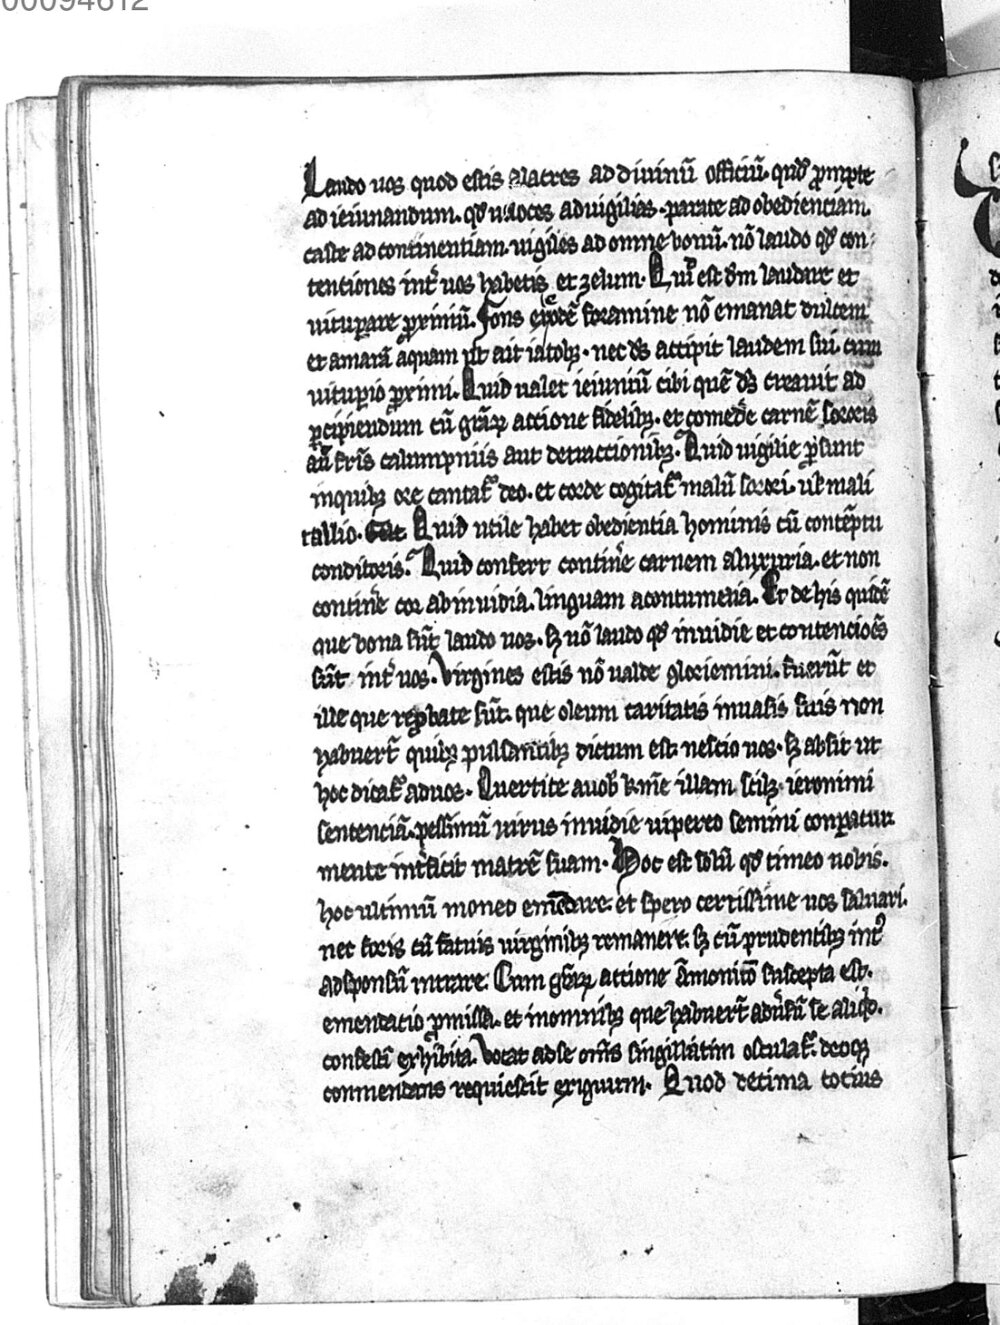 00094612
Laudo uos quod estis alacres ad diuinū officiū. quod ꝓmpte
ad ieiunandum. qd ueloces ad uigilias. parate ad obedienciam.
caste ad continentiam. uigiles ad omne bonū. nō laudo qd con-
tentiones int̄ uos habetis et zelum. Qui est dm laudare et
uituꝑare ꝓximū. Fons eodē foramine nō emanat dulcem
et amarā aquam ut ait iacobꝰ. nec ds accipit laudem sui cum
uituꝑio ꝓximi. Quid ualet ieiuniū cibi quē ds creauit ad
ꝑcipiendum cū grāꝝ accione fidelibꝫ. et comedē carnē sororis
aū fris calumpniis aut detraccionibꝫ. Quid uigilie ꝓsunt
in quibꝫ ore cantat deo. et corde cogitat malū sorori. ul mali
Quid utile habet obedientia hominis cū contēptu
conditoris. Quid confert continē carnem a luxuria. et non
continē cor ab inuidia. linguam a contumelia. Et de his quidē
que bona sūt laudo uos. sꝫ nō laudo qd inuidie et contenciões
sūt int̄ uos. Virgines estis nō ualde gloriemini. fuerūt et
ille que reꝓbate sūt. que oleum caritatis in uasis suis non
habuert̄ quibꝫ pulsantibꝫ dictum est. nescio uos. sꝫ absit ut
hoc dicat ad uos. Auertite a uob kme illam scilꝫ ieronimi
sentenciā. pessimū uirus inuidie uipereo semini conꝑatur.
mente int̄ficit matrē suam. Hoc est solū qd timeo uobis.
hoc ultimū moneo emēdare. et spero certissime uos saluari.
nec foris cū fatuis uirginibꝫ remanere. sꝫ cū prudentibꝫ intꝰ
ad sponsū intrare. Cum grāꝝ accione āmonitō suscepta est.
emendacio ꝓmissa. et in omnibꝫ que habuert̄ adūsū se aliqd.
confestī exhibita. Vocat ad se oms singillatim osculat. deoqꝫ
conmendans requiescit exiguum. Quod decima tocius